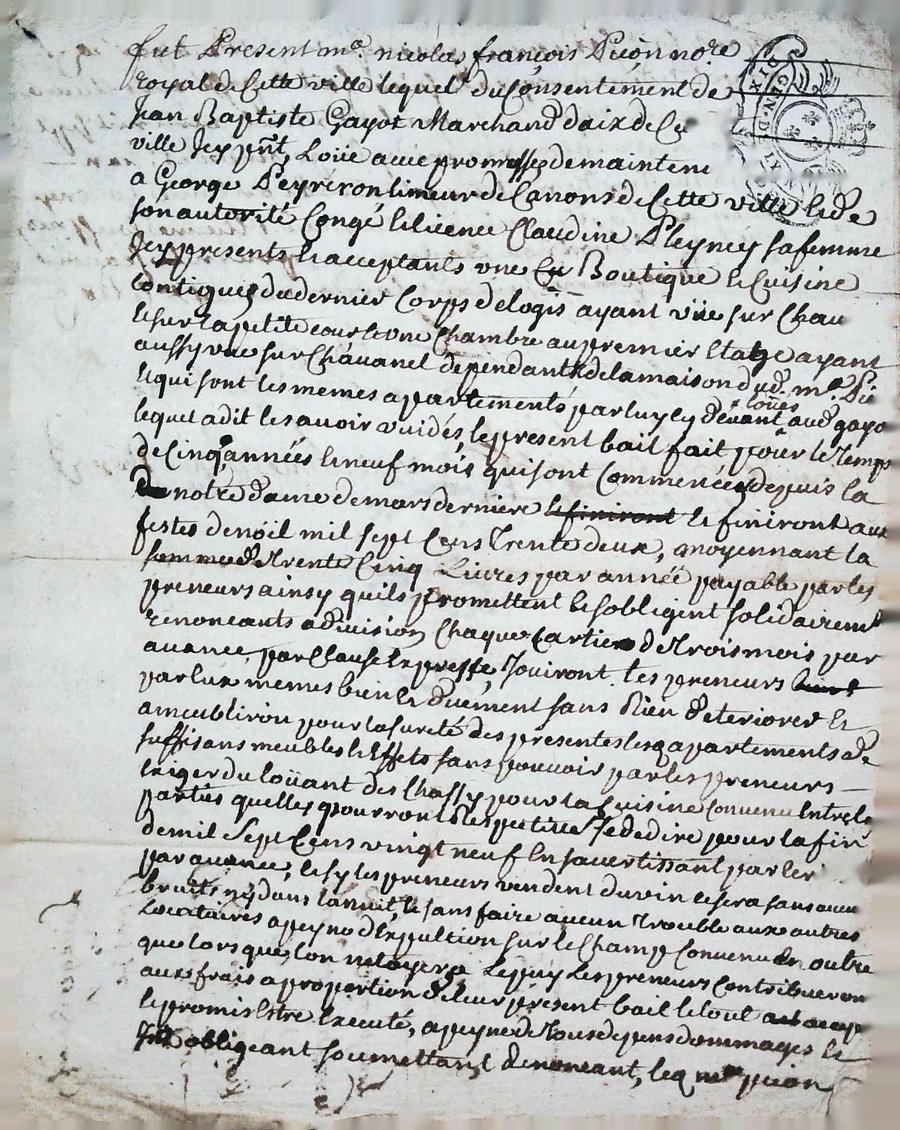 fut Present me. nicolas françois Picon nore
royal de Cette ville lequel du Consentement de
Jean Baptiste Gayot Marchand d'aix de Ce
ville Jcy pnt, Loüe avec promesse de mainteni
a George Peyreron limeur de Canons de Cette ville & de
son autorité Congé & licence Claudine Pleyney sa femme
Jcy presents & acceptants une Boutique & Cuisine
Contigues du dernier Corps de logis ayant vüe sur Chau
& sur la petite cour & une Chambre au premier Etage ayant
aussy vue sur Chavanel dependants de la maison dud. me. Pi
& qui sont les memes apartements par luy cy devant loüés aud. gayo
lequel a dit les avoir vuidés, le present bail fait pour le Temps
de Cinq années & neuf mois qui sont Commencées depuis la
notre dame de mars derniere & finiront & finiront aux
festes de noël mil sept Cens Trente deux, moyennant la
somme de Trente Cinq Livres par année payable par les
preneurs ainsy qu'ils promettent & s'obligent solidairemt
renonceants a division Chaque Cartier de Trois mois par
avance, par Clause Expresse, Jouiront les preneurs
par Eux memes bien & duement sans Rien deteriorer &
ameubliront pour la sureté des presentes lesq apartements de
suffisans meubles & Effets sans pouvoir par les preneurs
Exiger du loüant des Chassy pour la Cuisine Convenu Entre le
parties quelles pourront Respective Se dedire pour la fin
de mil Sept Cens vingt neuf En s'avertissant par
par avance, & sy les preneurs vendent du vin ce sera sans aucu
bruits ny dans la nuit, & sans faire aucun Trouble aux autres
Locataires a peyne d'Expultion sur le Champ Convenu En outre
que lors que l'on netoyera Le puy Les preneurs Contribueron
aux frais a proportion de leur present bail le tout
& promis Estre Executé, a peyne de Tous depens dommages &
obligeant soumettant Renonceant, leq me picon
DIX
DEN